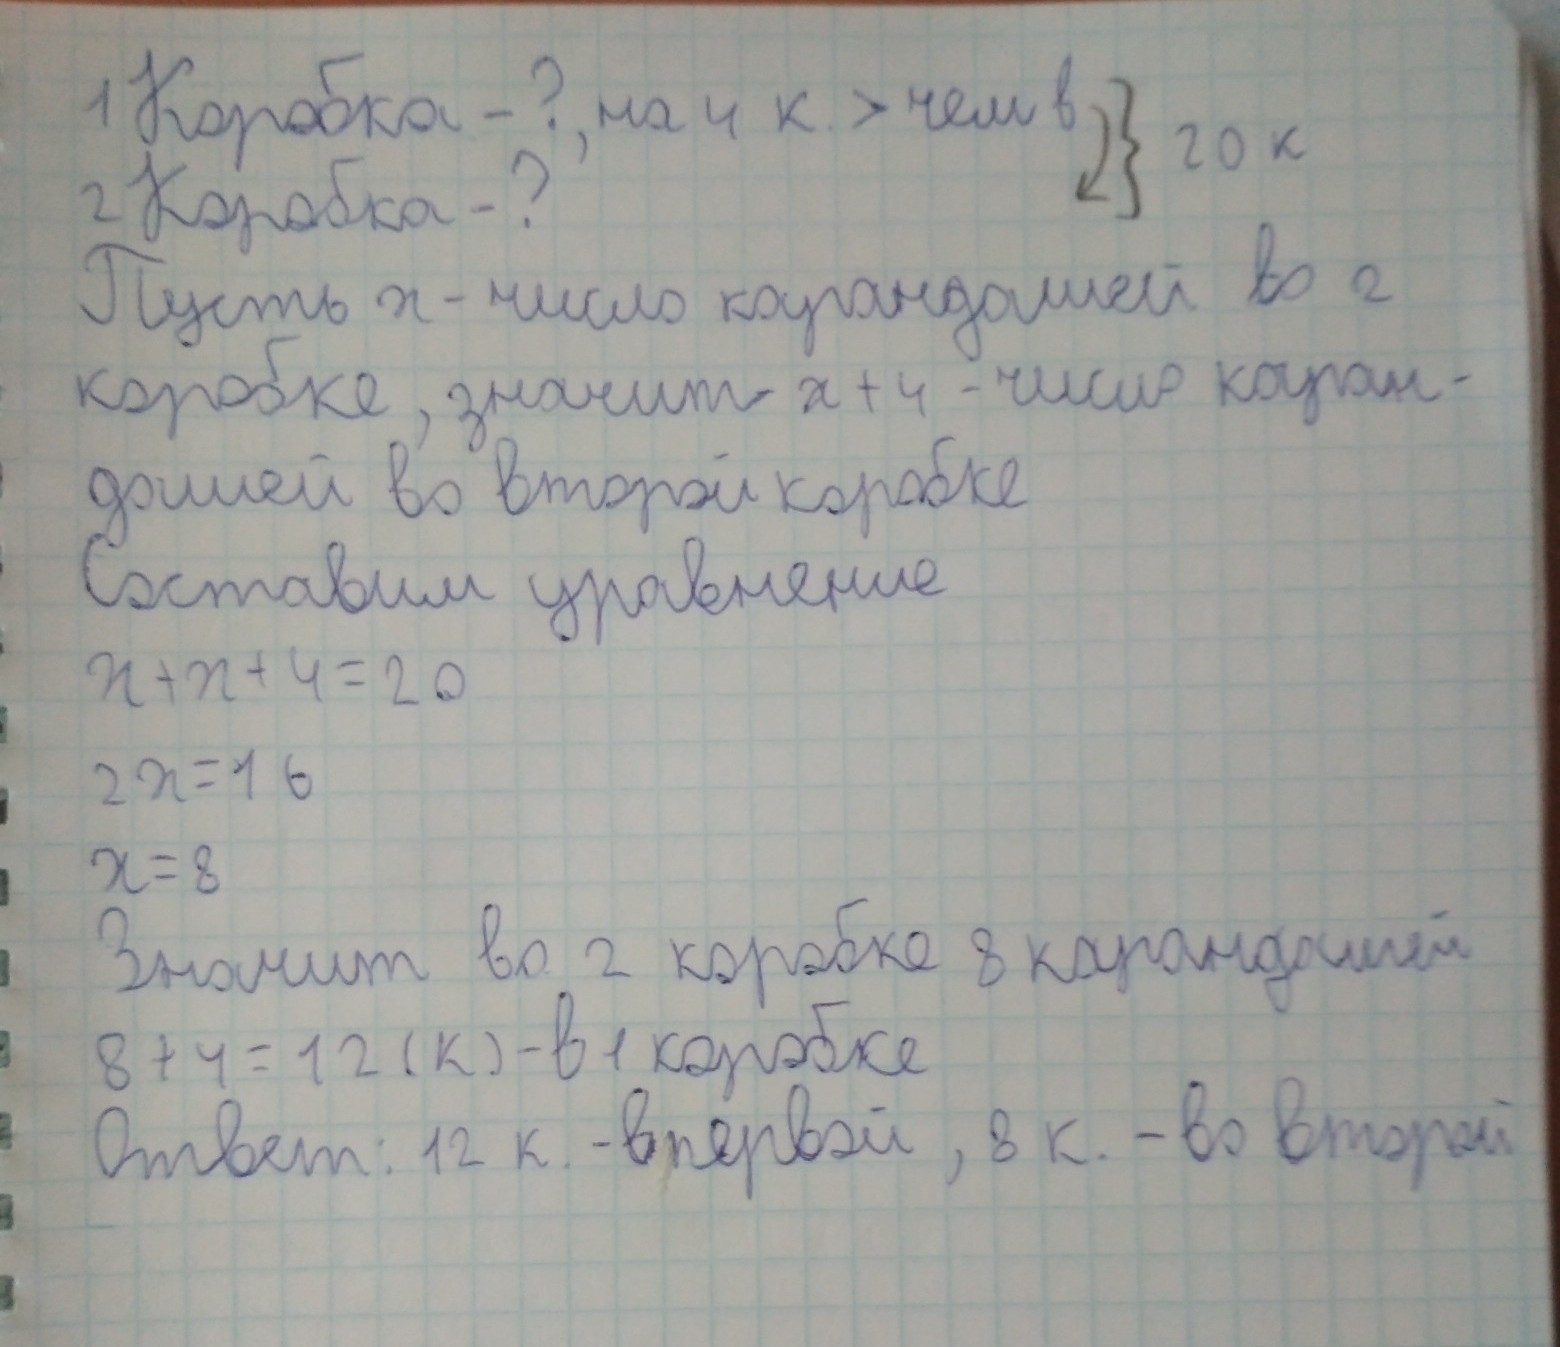 1 Коробка - ?, на 4 к. > чем в } 20 к
2 Коробка - ?
Пусть x - число карандашей во 2
коробке, значит x + 4 - число каран-
дашей во второй коробке
Составим уравнение
x + x + 4 = 20
2x = 16
x = 8
Значит во 2 коробке 8 карандашей
8 + 4 = 12 (к) - в 1 коробке
Ответ: 12 к. - в первой, 8 к. - во второй